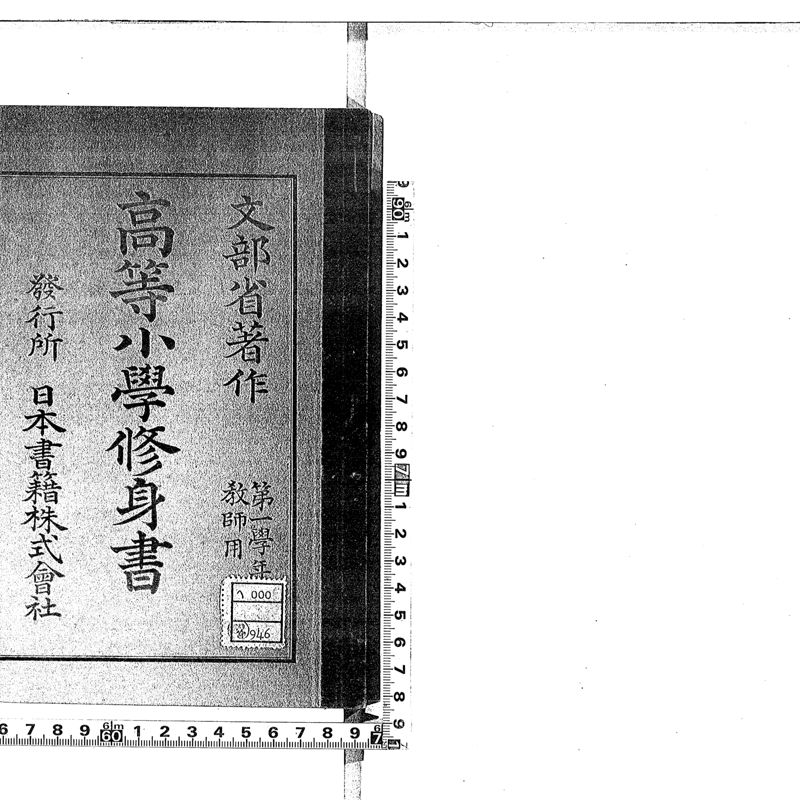 文部省著作
第一學年
教師用
高等小學修身書
發行所 日本書籍株式會社
000
946
9 1 2 3 4 5 6 7 8 9 1 2 3 4 5 6 7 8 9
6 7 8 9 60 1 2 3 4 5 6 7 8 9